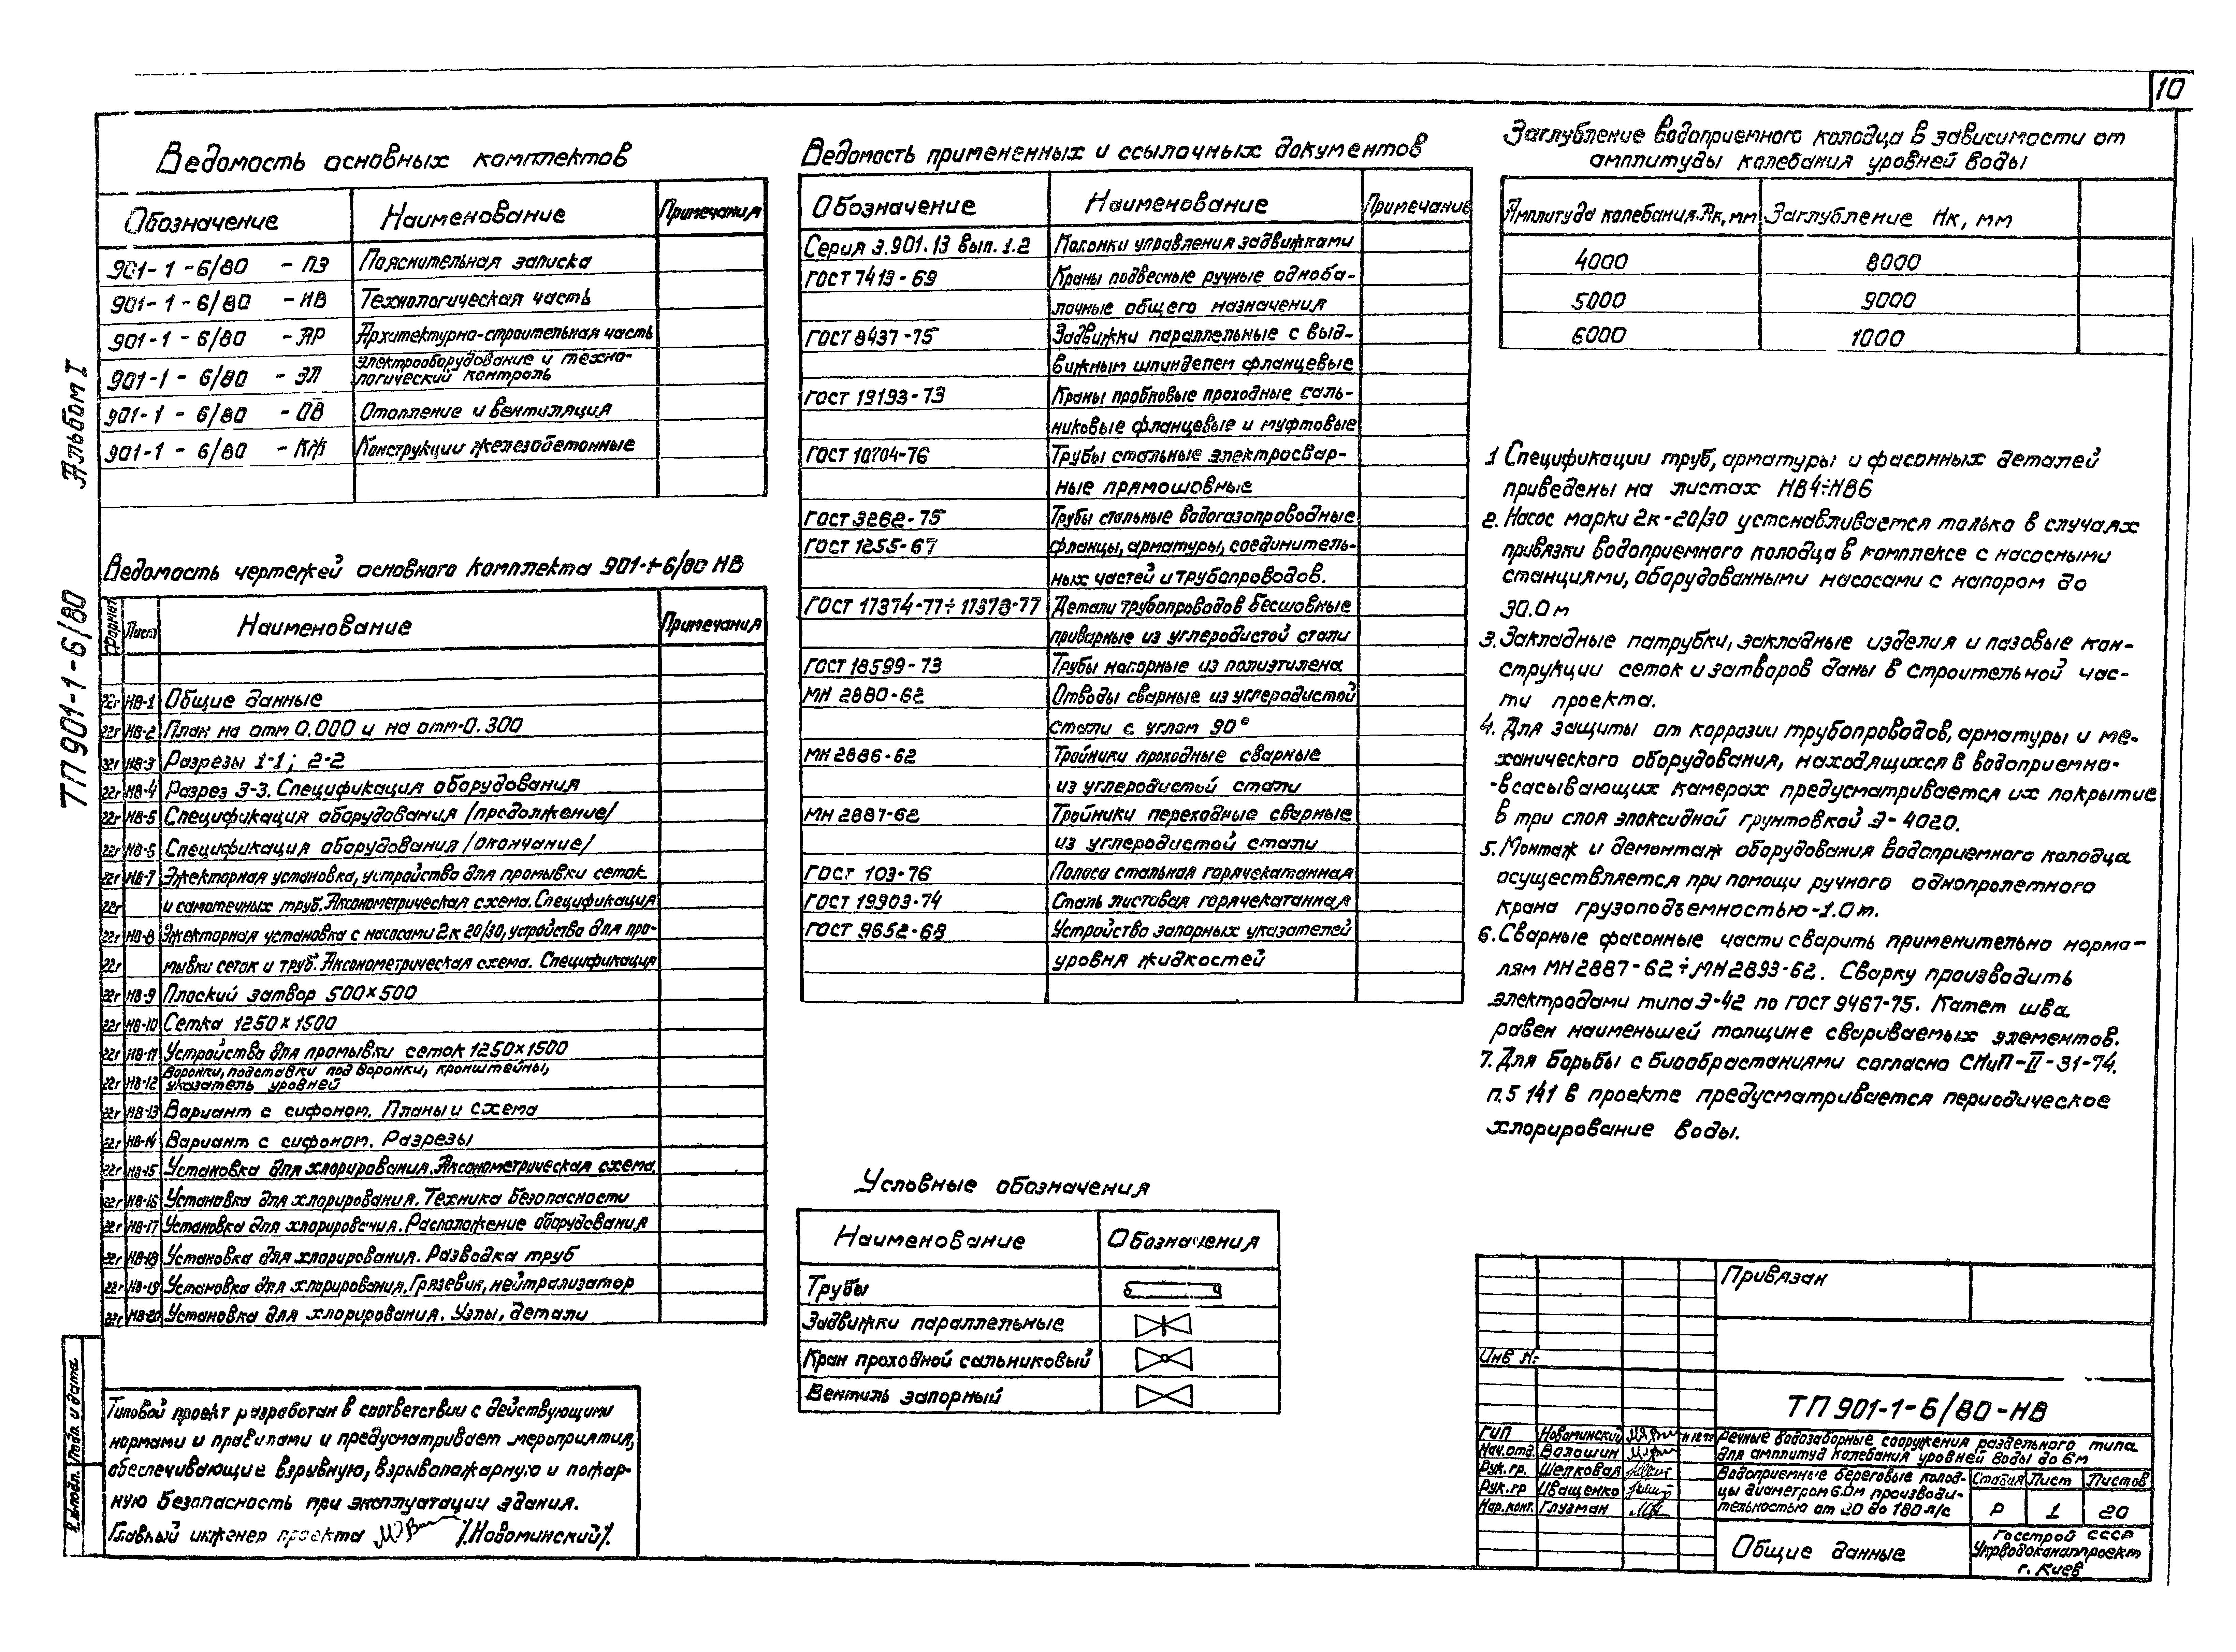 10
Ведомость основных комплектов
Обозначение Наименование Примечания
901-1-6/80 - ПЗ Пояснительная записка
901-1-6/80 - НВ Технологическая часть
901-1-6/80 - АР Архитектурно-строительная часть
901-1-6/80 - ЭЛ Электрооборудование и техно-
логический контроль
901-1-6/80 - ОВ Отопление и вентиляция
901-1-6/80 - КЖ Конструкции железобетонные
Ведомость чертежей основного комплекта 901-1-6/80 НВ
Формат Лист Наименование Примечания
22г НВ-1 Общие данные
22г НВ-2 План на отм 0.000 и на отм-0.300
22г НВ-3 Разрезы 1-1; 2-2
22г НВ-4 Разрез 3-3. Спецификация оборудования
22г НВ-5 Спецификация оборудования /продолжение/
22г НВ-6 Спецификация оборудования /окончание/
22г НВ-7 Эжекторная установка, устройство для промывки сеток
22г и самотечных труб. Аксонометрическая схема. Спецификация
22г НВ-8 Эжекторная установка с насосами 2к 20/30, устройство для про-
22г мывки сеток и труб. Аксонометрическая схема. Спецификация
22г НВ-9 Плоский затвор 500×500
22г НВ-10 Сетка 1250×1500
22г НВ-11 Устройство для промывки сеток 1250×1500
22г НВ-12 Воронки, подставки под воронки, кронштейны,
указатель уровней
22г НВ-13 Вариант с сифоном. Планы и схема
22г НВ-14 Вариант с сифоном. Разрезы
22г НВ-15 Установка для хлорирования. Аксонометрическая схема.
22г НВ-16 Установка для хлорирования. Техника безопасности
22г НВ-17 Установка для хлорировечия. Расположение оборудования
22г НВ-18 Установка для хлорирования. Разводка труб
22г НВ-19 Установка для хлорирования. Грязевик, нейтрализатор
22г НВ-20 Установка для хлорирования. Узлы, детали
Типовой проект разработан в соответствии с действующими
нормами и правилами и предусматривает мероприятия,
обеспечивающие взрывную, взрывопожарную и пожар-
ную безопасность при эксплуатации здания.
Главный инженер проекта /Новоминский/.
Альбом I
ТП 901-1-6/80
Подп. и дата
Ведомость примененных и ссылочных документов
Обозначение Наименование Примечание
Серия 3.901.13 вып. 1.2 Колонки управления задвижками
ГОСТ 7413-69 Краны подвесные ручные одноба-
лочные общего назначения
ГОСТ 8437-75 Задвижки параллельные с выд-
вижным шпинделем фланцевые
ГОСТ 19193-73 Краны пробковые проходные саль-
никовые фланцевые и муфтовые
ГОСТ 10704-76 Трубы стальные электросвар-
ные прямошовные
ГОСТ 3262-75 Трубы стальные водогазопроводные
ГОСТ 1255-67 Фланцы, арматуры, соединитель-
ных частей и трубопроводов.
ГОСТ 17374-77÷17378-77 Детали трубопроводов бесшовные
приварные из углеродистой стали
ГОСТ 18599-73 Трубы напорные из полиэтилена
МН 2880-62 Отводы сварные из углеродистой
стали с углом 90°
МН 2886-62 Тройники проходные сварные
из углеродистой стали
МН 2887-62 Тройники переходные сварные
из углеродистой стали
ГОСТ 103-76 Полоса стальная горячекатанная
ГОСТ 19903-74 Сталь листовая горячекатанная
ГОСТ 9652-68 Устройство запорных указателей
уровня жидкостей
Условные обозначения
Наименование Обозначения
Трубы
Задвижки параллельные
Кран проходной сальниковый
Вентиль запорный
Заглубление водоприемного колодца в зависимости от
амплитуды колебания уровней воды
Амплитуда колебания Ак, мм Заглубление Нк, мм
4000 8000
5000 9000
6000 1000
1 Спецификации труб, арматуры и фасонных деталей
приведены на листах НВ4÷НВ6
2. Насос марки 2к-20/30 устанавливается только в случаях
привязки водоприемного колодца в комплексе с насосными
станциями, оборудованными насосами с напором до
30.0 м
3. Закладные патрубки, закладные изделия и пазовые кон-
струкции сеток и затворов даны в строительной час-
ти проекта.
4. Для защиты от коррозии трубопроводов, арматуры и ме-
ханического оборудования, находящихся в водоприемно-
-всасывающих камерах предусматривается их покрытие
в три слоя эпоксидной грунтовкой Э-4020.
5. Монтаж и демонтаж оборудования водоприемного колодца
осуществляется при помощи ручного однопролетного
крана грузоподъемностью-1.0т.
6. Сварные фасонные части сварить применительно норма-
лям МН2887-62÷МН2893-62. Сварку производить
электродами типа Э-42 по ГОСТ 9467-75. Катет шва
равен наименьшей толщине свариваемых элементов.
7. Для борьбы с биообрастаниями согласно СНиП-II-31-74.
п.5 141 в проекте предусматривается периодическое
хлорирование воды.
Привязан
Инв №
ТП 901-1-6/80-НВ
ГИП Новоминский
Нач.отд. Волошин
Рук.гр. Шелковая
Рук.гр Иващенко
Нар.конт. Глузман
Речные водозаборные сооружения раздельного типа
для амплитуд колебания уровней воды до 6м
Водоприемные береговые колод-
цы диаметром 6.0м производи-
тельностью от 20 до 180 л/с
Стадия Лист Листов
Р 1 20
Общие данные
Госстрой СССР
Укрводоканалпроект
г. Киев